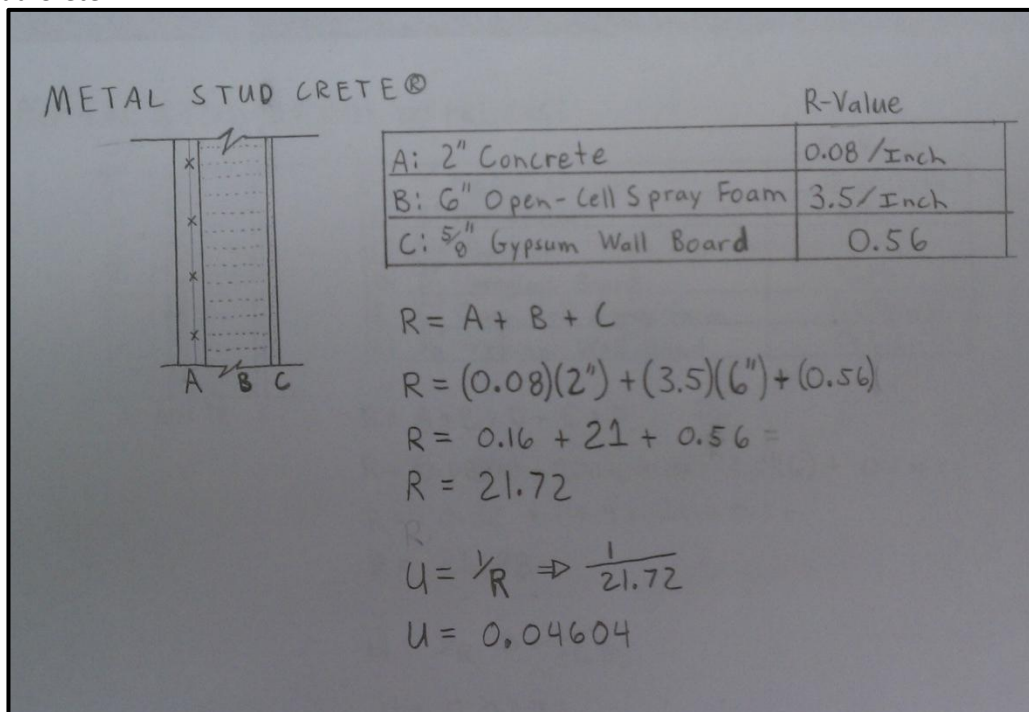 METAL STUD CRETE®
R-Value
A: 2" Concrete 0.08/Inch
B: 6" Open-Cell Spray Foam 3.5/Inch
C: 5/8" Gypsum Wall Board 0.56
A B C
R = A + B + C
R = (0.08)(2") + (3.5)(6") + (0.56)
R = 0.16 + 21 + 0.56 =
R = 21.72
R
U = 1/R ⇒ 1/21.72
U = 0.04604